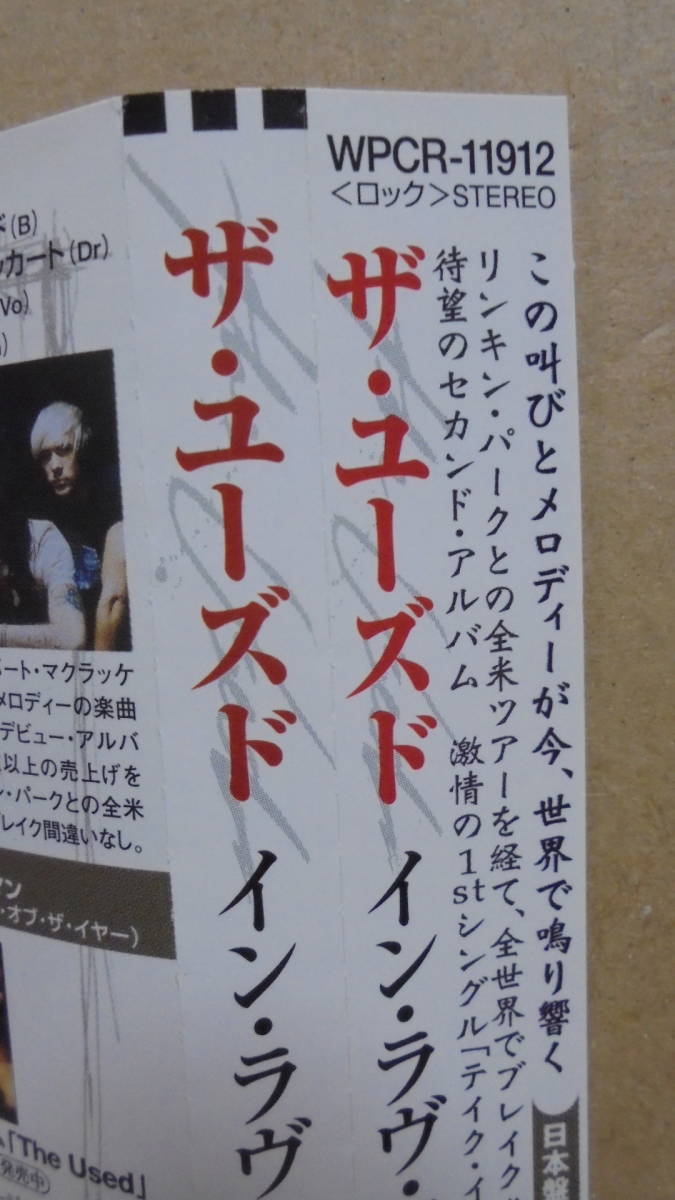 WPCR-11912
<ロック>STEREO
この叫びとメロディーが今、世界で鳴り響く
リンキン・パークとの全米ツアーを経て、全世界でブレイク
待望のセカンド・アルバム 激情の1stシングル「テイク・イ
ザ・ユーズド イン・ラヴ・
ザ・ユーズド イン・ラヴ
日本盤
ド(B)
ッカート(Dr)
Vo)
バート・マクラッケ
メロディーの楽曲
デビュー・アルバ
以上の売上げを
ン・パークとの全米
ブレイク間違いなし。
マン
・オブ・ザ・イヤー)
「The Used」
発売中